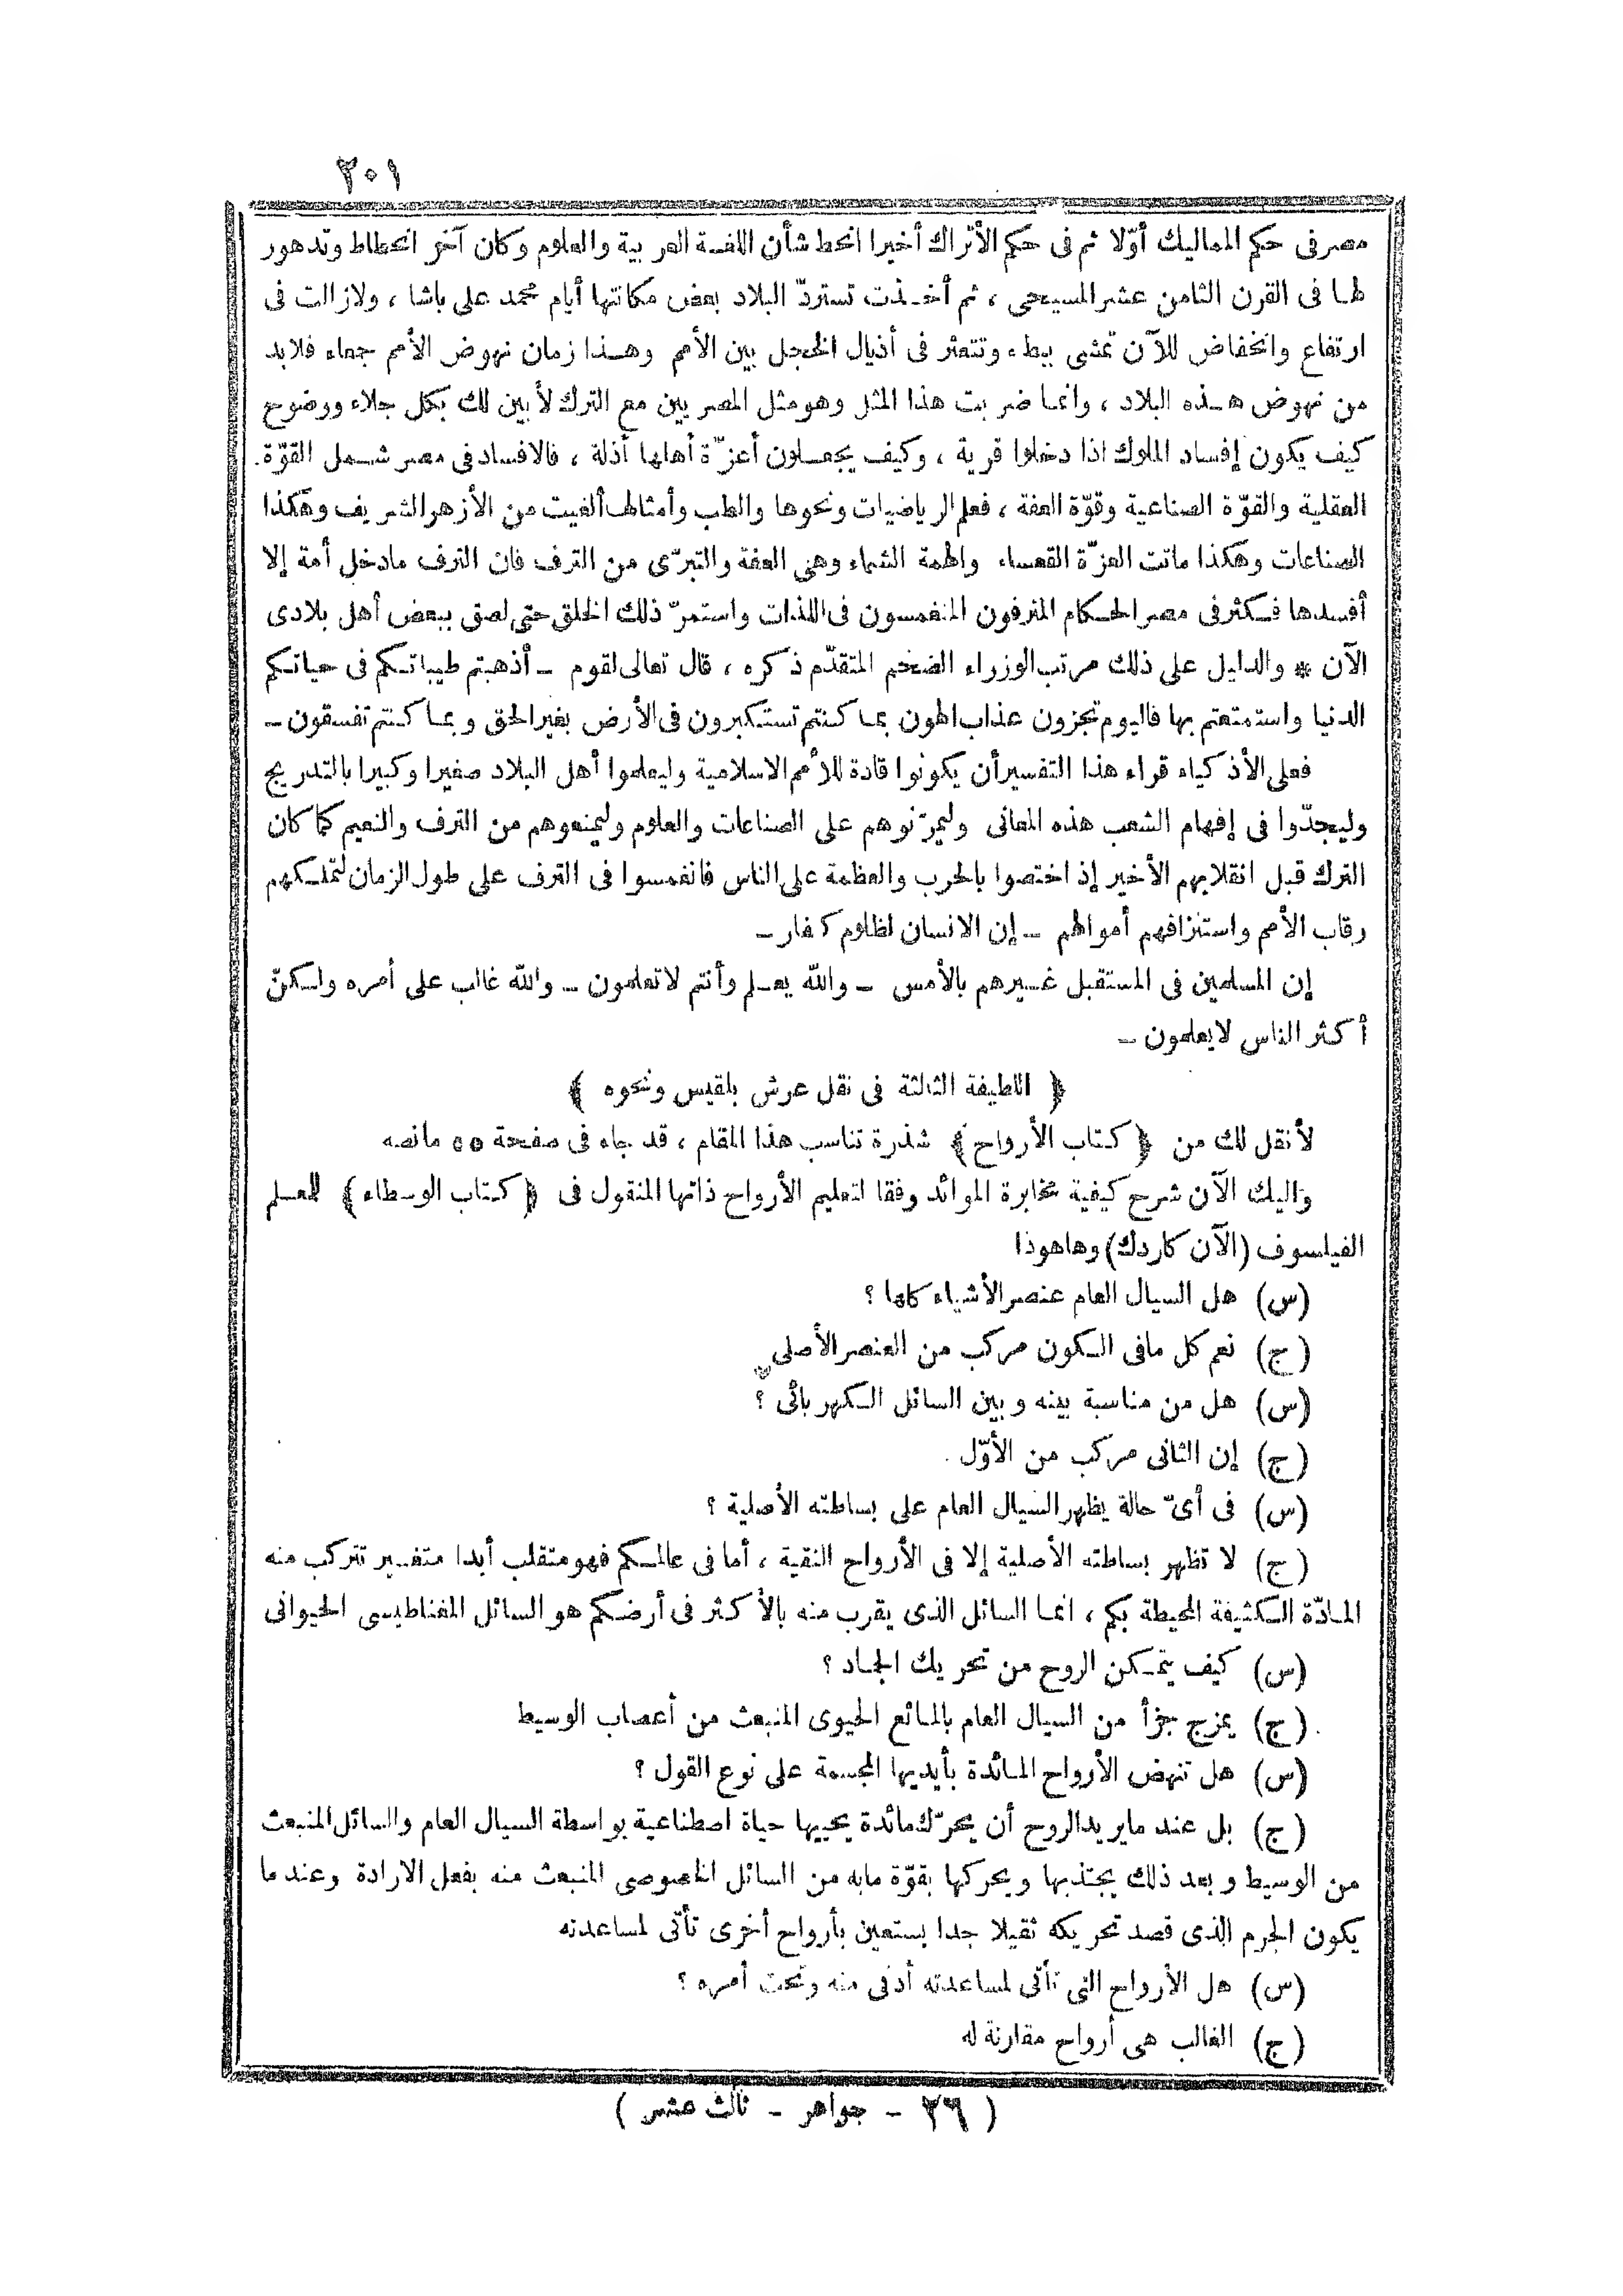 ٢٠١
مصر فى حكم المماليك أوّلا ثم فى حكم الأتراك أخيرا انحط شأن اللغة العربية والعلوم وكان آخر انحطاط وتدهور
لها فى القرن الثامن عشر المسيحى ، ثم أخذت تستردّ البلاد بعض مكانتها أيام محمد على باشا ، ولا زالت فى
ارتفاع وانخفاض للآن تمشى ببطء وتتعثر فى أذيال الخجل بين الأمم وهذا زمان نهوض الأمم جمعاء فلابد
من نهوض هذه البلاد ، وانما ضربت هذا المثل وهو مثل المصريين مع الترك لأبين لك بكل جلاء ووضوح
كيف يكون إفساد الملوك اذا دخلوا قرية ، وكيف يجعلون أعزّة أهلها أذلة ، فالافساد فى مصر شمل القوّة
العقلية والقوّة الصناعية وقوّة العفة ، فعلم الرياضيات ونحوها والطب وأمثالها ألغيت من الأزهر الشريف وهكذا
الصناعات وهكذا ماتت العزّة القعساء والهمة الشماء وهى العفة والتبرّى من الترف فان الترف مادخل أمة إلا
أفسدها فكثر فى مصر الحكام المترفون المنغمسون فى اللذات واستمرّ ذلك الخلق حتى لصق ببعض أهل بلادى
الآن * والدليل على ذلك مرتب الوزراء الضخم المتقدّم ذكره ، قال تعالى لقوم ـ أذهبتم طيباتكم فى حياتكم
الدنيا واستمتعتم بها فاليوم تجزون عذاب الهون بما كنتم تستكبرون فى الأرض بغير الحق وبما كنتم تفسقون ـ
فعلى الأذكياء قراء هذا التفسير أن يكونوا قادة للأمم الاسلامية وليعلموا أهل البلاد صغيرا وكبيرا بالتدريج
وليجدّوا فى إفهام الشعب هذه المعانى وليمرّنوهم على الصناعات والعلوم وليمنعوهم من الترف والنعيم كما كان
الترك قبل انقلابهم الأخير إذ اختصوا بالحرب والعظمة على الناس فانغمسوا فى الترف على طول الزمان لتملكهم
رقاب الأمم واستنزافهم أموالهم ـ إن الانسان لظلوم كفار ـ
إن المسلمين فى المستقبل غيرهم بالأمس ـ والله يعلم وأنتم لا تعلمون ـ والله غالب على أمره ولكنّ
أكثر الناس لا يعلمون ـ
﴿ اللطيفة الثالثة فى نقل عرش بلقيس ونحوه ﴾
لأنقل لك من ﴿ كتاب الأرواح ﴾ شذرة تناسب هذا المقام ، قد جاء فى صفحة ٥٥ مانصه
واليك الآن شرح كيفية مخابرة الموائد وفقا لتعليم الأرواح ذاتها المنقول فى ﴿ كتاب الوسطاء ﴾ للمعلم
الفيلسوف (الآن كاردك) وهاهوذا
(س) هل السيال العام عنصر الأشياء كلها ؟
(ج) نعم كل مافى الكون مركب من العنصر الأصلى
(س) هل من مناسبة بينه وبين السائل الكهربائى ؟
(ج) إن الثانى مركب من الأوّل
(س) فى أىّ حالة يظهر السيال العام على بساطته الأصلية ؟
(ج) لا تظهر بساطته الأصلية إلا فى الأرواح النقية ، أما فى عالمكم فهو متقلب أبدا متغير تتركب منه
المادّة الكثيفة المحيطة بكم ، انما السائل الذى يقرب منه بالأكثر فى أرضكم هو السائل المغناطيسى الحيوانى
(س) كيف يتمكن الروح من تحريك الجماد ؟
(ج) يمزج جزأ من السيال العام بالمائع الحيوى المنبعث من أعصاب الوسيط
(س) هل تنهض الأرواح المائدة بأيديها المجسمة على نوع القول ؟
(ج) بل عند مايريد الروح أن يحرّك مائدة يحييها حياة اصطناعية بواسطة السيال العام والسائل المنبعث
من الوسيط وبعد ذلك يجتذبها ويحركها بقوّة مابه من السائل الخصوصى المنبعث منه بفعل الارادة وعند ما
يكون الجرم الذى قصد تحريكه ثقيلا جدا يستعين بأرواح أخرى تأتى لمساعدته
(س) هل الأرواح التى تأتى لمساعدته أدنى منه وتحت أمره ؟
(ج) الغالب هى أرواح مقارنة له
( ٢٦ - جواهر - ثالث عشر )